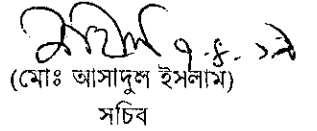 ৭.৪.১৯
(মোঃ আসাদুল ইসলাম)
সচিব